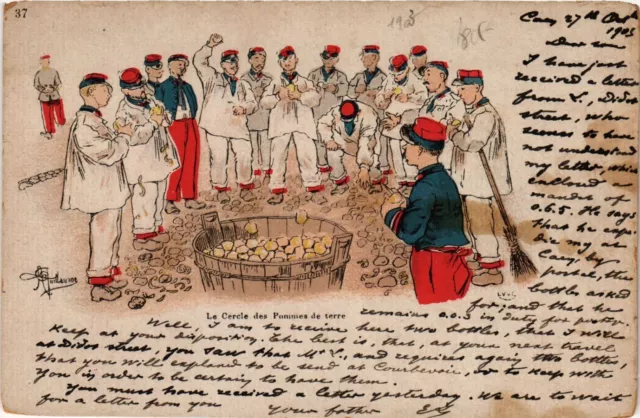 37
1903
Caen 27th Oct.
1903
Dear son
I have just
received a letter
from L., Didos
street, who
seems to have
not understood
my letter, which
enclosed a
mandat of
0.6.5. He says
that he
die my at
Caen, by
postal, the
bottles asked
for; and that he
Le Cercle des Pommes de terre
remains 0.0.5 in duty for
Well, I am to receive here two bottles, that I will
keep at your disposition. The best is, that, at your next travel
at Didos street, you saw that Mr L., and requires again two bottles,
that you will explaned to be send at Courbevoie, so to keep with
you in order to be certain to have them.
You must have received a letter yesterday. We are to wait
for a letter from you
Your father